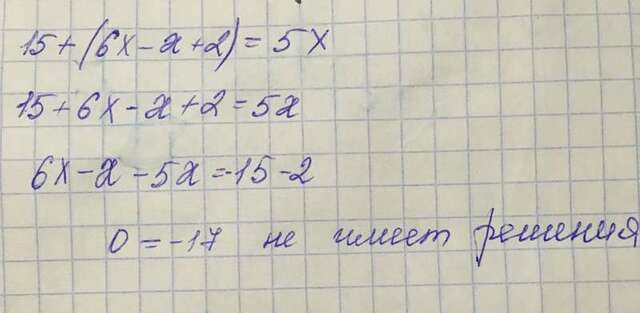 15+(6x-x+2)=5x
15+6x-x+2=5x
6x-x-5x=-15-2
0=-17 не имеет решения